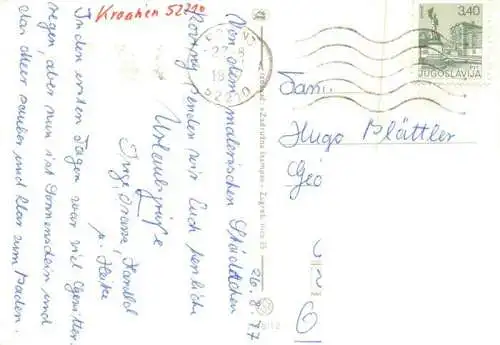 Kroatien 52210
26.8.77
Von dem malerischen Städtchen
Rovinj senden wir Euch herzliche
Urlaubsgrüße
Inge,
u. Heike
In den ersten Tagen war viel Gewitter
regen, aber nun ist Sonnenschein und
das Meer sauber und klar zum Baden.
Fam.
Hugo Blättler
3.40
JUGOSLAVIJA
52210
Zagreb